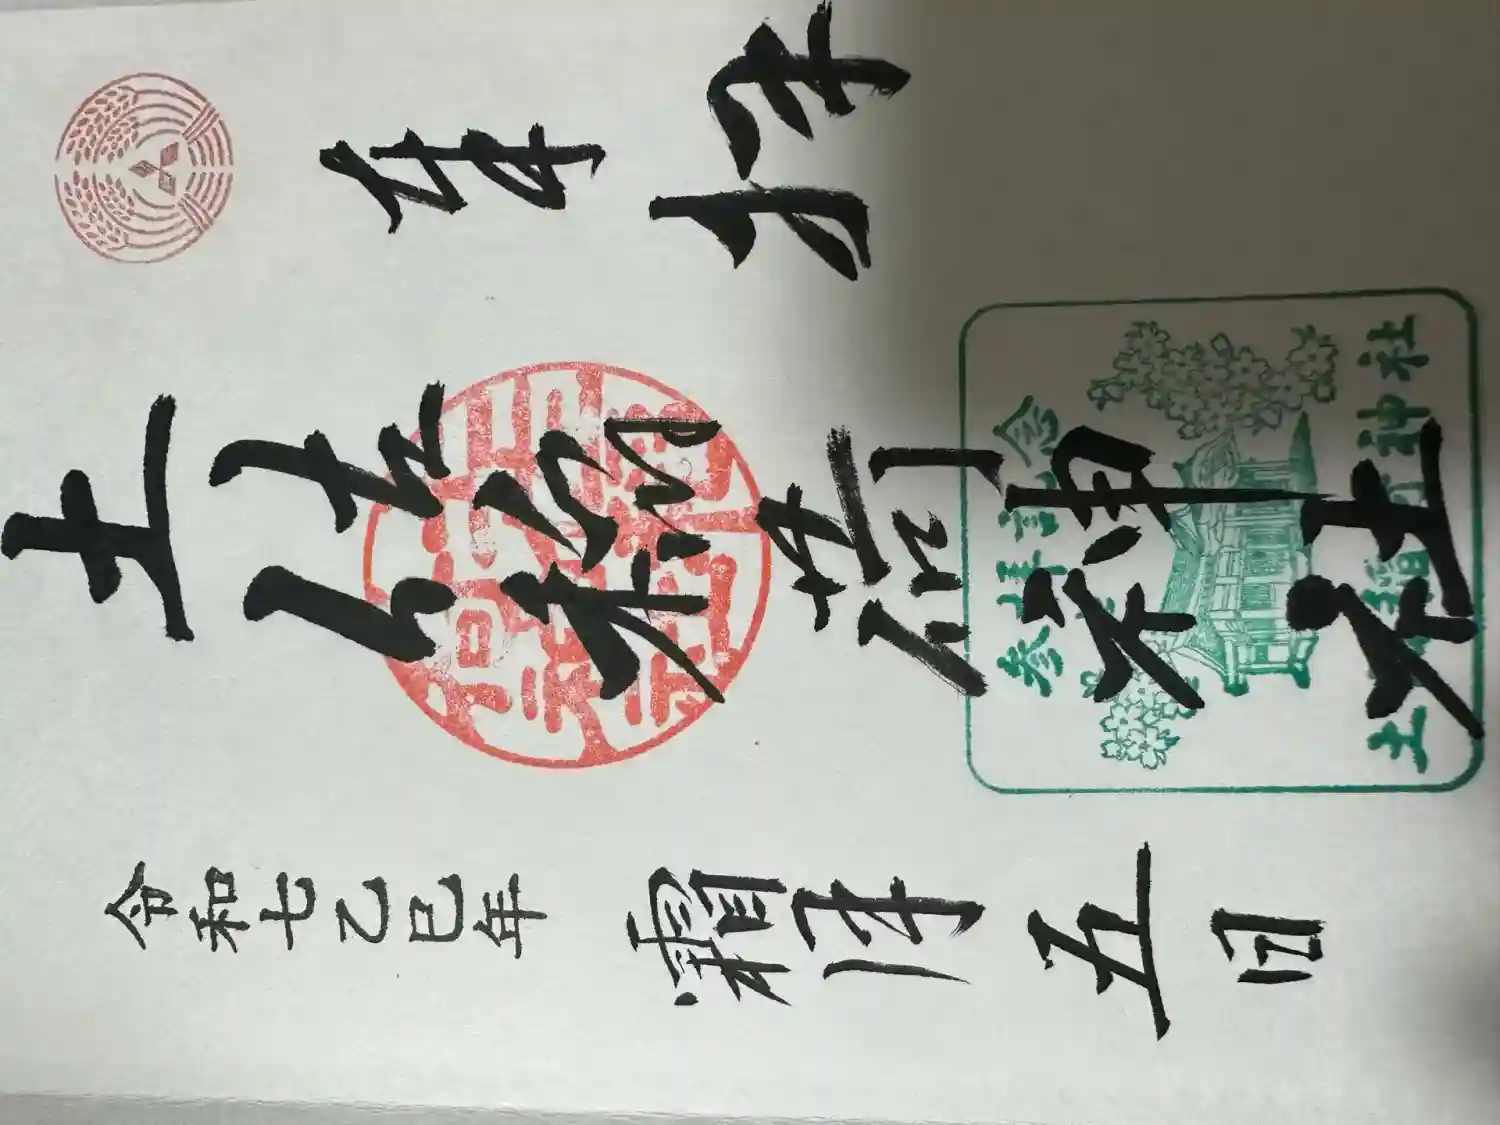 奉拝
土稲荷神社
令和七乙巳年 霜降五日
参拝記念
土稲荷神社